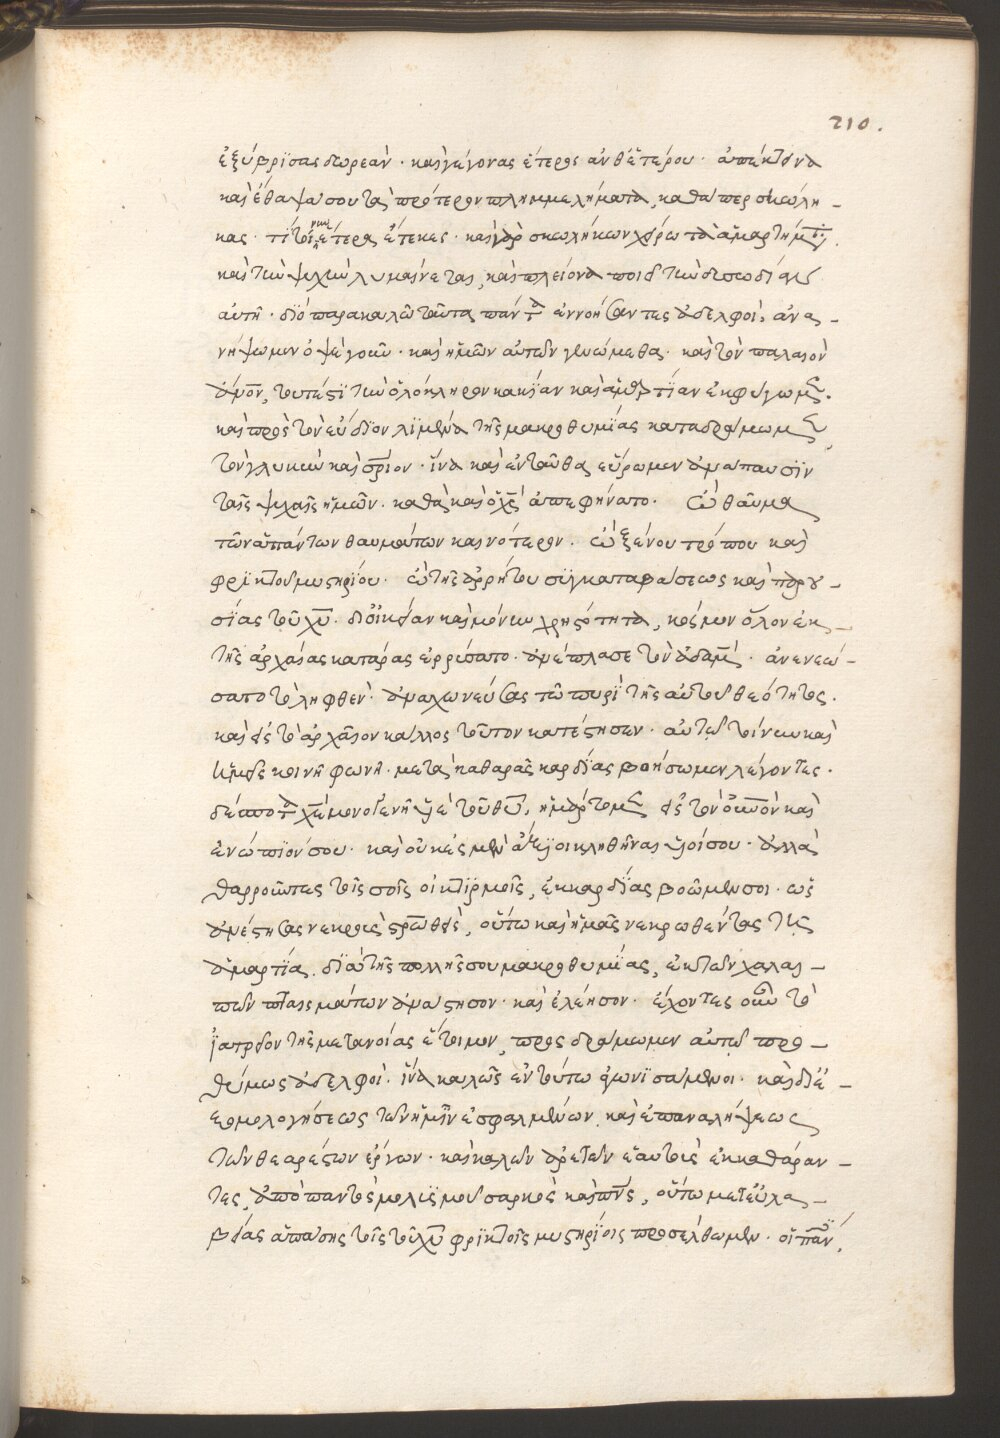 210.
ἐξύβρϊσας δωρεὰν · καὶ γέγονας ἕτερος ἀνθ' ἑτέρου · ἀπέκτεινα
καὶ ἔθαψα σου τὰ πρότερον πλημμελήματα, καθάπερ σκώλη –
κας · τί ἕτερα ἔτεκες · καὶ γὰρ σκωλήκων χείρω τὰ ἁμαρτήμ
καὶ τὴν ψυχὴν λυμαίνεται, καὶ πλείονα ποιεῖ τὴν δυσωδίαν
αὐτῆ · διὸ παρακαλῶ ταῦτα πάντα ἐννοήσαντες ἀδελφοὶ, ἀνα –
νήψωμεν ὀψέ γοῦν · καὶ ἡμῶν αὐτῶν γενώμεθα · καὶ τὸν παλαιὸν
ἀνον, τουτέστι τὴν ὁλόκληρον κακίαν καὶ ἁμαρτίαν ἐκφύγωμεν ·
καὶ πρὸς τὸν εὔδιον λϊμένα τῆς μακροθυμίας καταδράμωμεν,
τὸν γλυκὺν καὶ σρίον · ἵνα καὶ ἐνταῦθα εὕρωμεν ἀνάπαυσϊν
ταῖς ψυχαῖς ἡμῶν · καθὰ καὶ ὁ χς ἀπεφήνατο · Ὢ θαῦμα
τῶν ἁπάντων θαυμάτων καινότερον · ὢ ξένου τρόπου καὶ
φρϊκτοῦ μυστηρίου · ὢ τῆς ἀρρήτου συγκαταβάσεως καὶ παρου –
σίας τοῦ χυ · δι' οἰκείαν καὶ μόνην χρηστότητα, κόσμον ὅλον ἐκ –
τῆς ἀρχαίας κατάρας ἐρρύσατο · ἀνέπλασε τὸν ἀδάμ · ἀνενεώ –
σατο τὸ ληφθὲν · ἀναχωνεύσας τῶ πυρὶ τῆς αὐτοῦ θεότητος ·
καὶ εἰς τὸ ἀρχαῖον κάλλος τοῦτον κατέστησεν · αὐτῶ τοίνυν καὶ
ἡμεῖς κοινῆ φωνῆ · μετὰ καθαρᾶς καρδίας βοήσωμεν λέγοντες ·
δέσποτα χε μονογενῆ υἱὲ τοῦ θυ, ἡμάρτομεν εἰς τὸν οὐνον καὶ
ἐνώπϊόν σου · καὶ οὐκ ἐσμὲν ἄξϊοι κληθῆναι υἱοί σου · ἀλλὰ
θαρροῦντες τοῖς σοῖς οἰκτϊρμοῖς, ἐκ καρδίας βοῶμεν σοι · ὡς
ἀνέστησας νεκροὺς στρωθεὶς, οὕτω καὶ ἡμᾶς νεκρωθέντας τῆ
ἁμαρτία, διὰ τῆς πολλῆς σου μακροθυμίας, ἐκ τῶν χαλε –
πῶν πταισμάτων ἀνάστησον · καὶ ἐλέησον · ἔχοντες οὖν τὸ
ἰατρεῖον τῆς μετανοίας ἕτοιμον, προσδράμωμεν αὐτῶ προ –
θύμως ἀδελφοὶ · ἵνα καλῶς ἐν τούτω ἀγωνισάμενοι · καὶ δι' ἐ –
ξομολογήσεως τῶν ἡμῖν ἐσφαλμένων, καὶ ἐπαναλήψεως
τῶν θεαρέστων ἔργων · καὶ καλῶν ἀρετῶν ἑαυτοὺς ἐκκαθάραν –
τες, ἀπὸ παντὸς μολυσμοῦ σαρκὸς καὶ πνς, οὕτω μετ' εὐλα –
βείας ἁπάσης τοῖς τοῦ χυ φρϊκτοῖς μυστηρίοις προσέλθωμεν ·